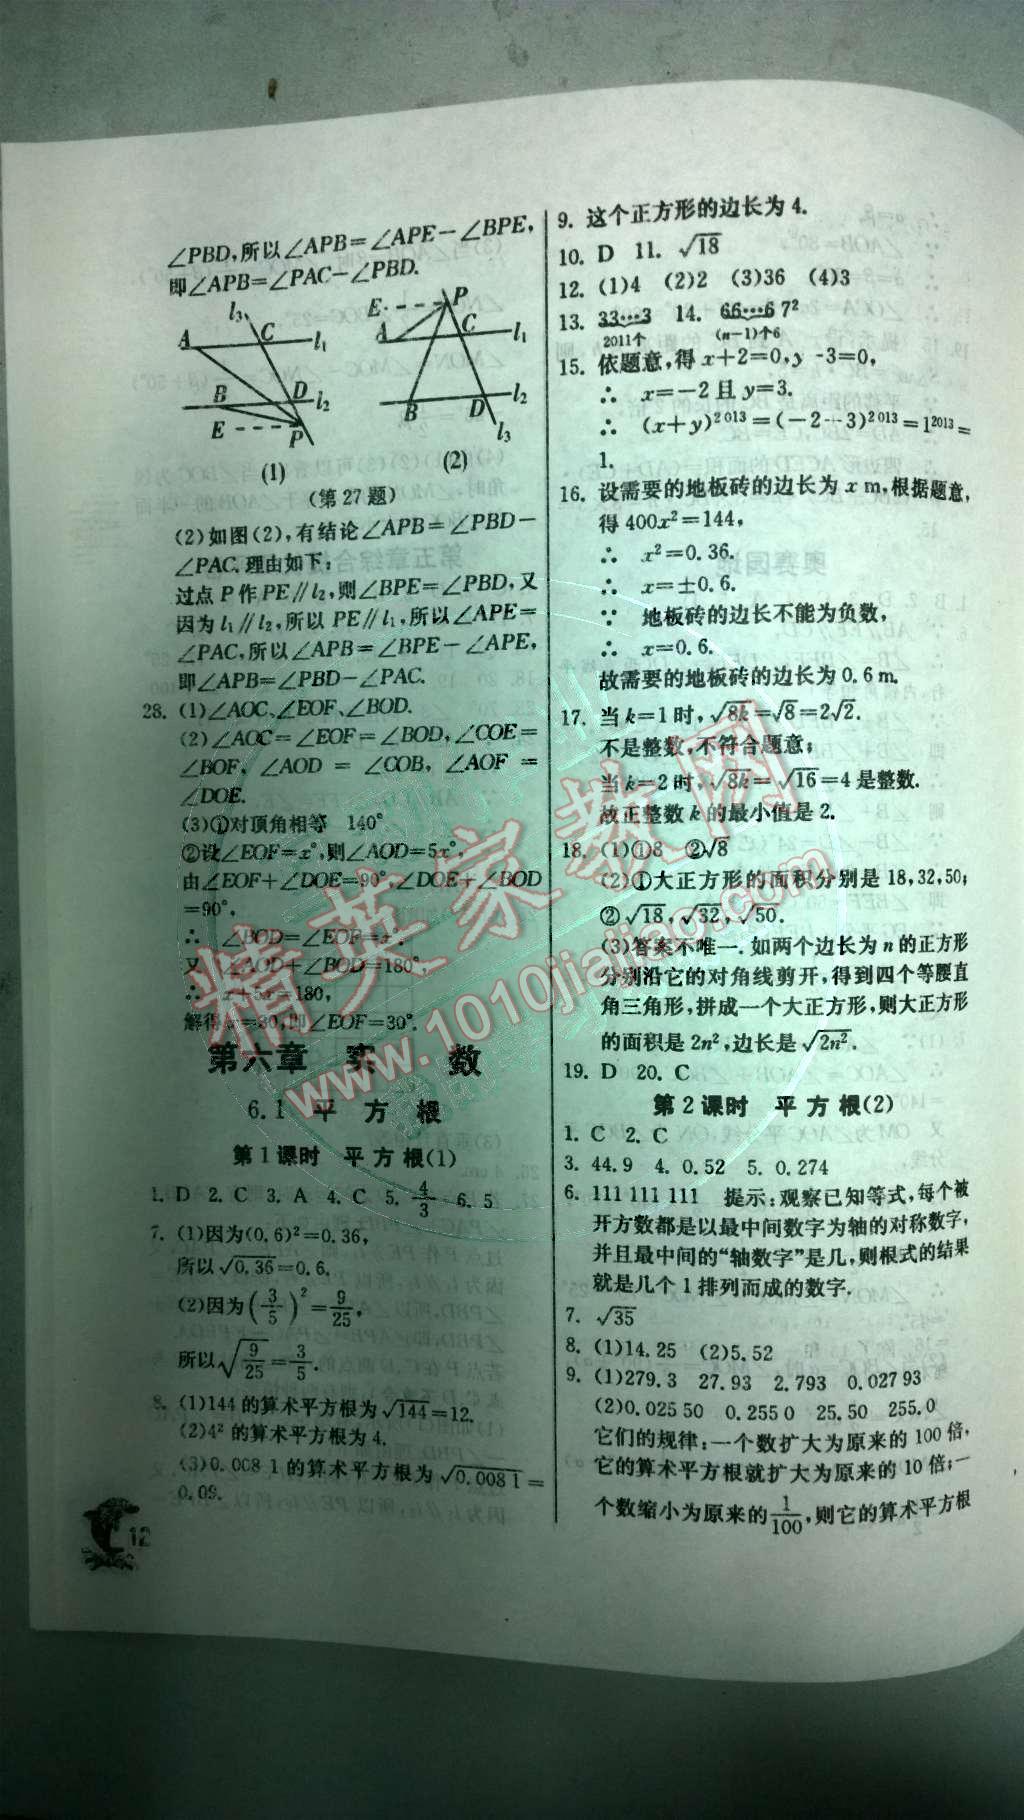 ∠PBD,所以∠APB=∠APE-∠BPE,
即∠APB=∠PAC-∠PBD.
l₃ C l₁ A B D l₂ E P
E P A C l₁ B D l₂ l₃
(1) (2)
(第 27 题)
(2)如图(2),有结论∠APB=∠PBD-
∠PAC.理由如下:
过点 P 作 PE∥l₂,则∠BPE=∠PBD,又
因为 l₁∥l₂,所以 PE∥l₁,所以∠APE=
∠PAC,所以∠APB=∠BPE-∠APE,
即∠APB=∠PBD-∠PAC.
28. (1)∠AOC、∠EOF、∠BOD.
(2)∠AOC=∠EOF=∠BOD,∠COE=
∠BOF, ∠AOD = ∠COB, ∠AOF =
∠DOE.
(3)①对顶角相等 140°
②设∠EOF=x°,则∠AOD=5x°,
由∠EOF+∠DOE=90°,∠DOE+∠BOD
=90°,
∴ ∠BOD=∠EOF=x°.
又 ∠AOD+∠BOD=180°,
∴ x+5x=180,
解得x=30,即∠EOF=30°.
第六章 实 数
6.1 平 方 根
第 1 课时 平 方 根(1)
1. D 2. C 3. A 4. C 5. 4/3 6. 5
7. (1)因为(0.6)²=0.36,
所以√0.36=0.6.
(2)因为(3/5)²=9/25,
所以√(9/25)=3/5.
8. (1)144 的算术平方根为√144=12.
(2)4² 的算术平方根为 4.
(3)0.008 1 的算术平方根为√0.008 1=
0.09.
12
9. 这个正方形的边长为 4.
10. D 11. √18
12. (1)4 (2)2 (3)36 (4)3
13. 33…3 14. 66…6 7²
2011个 (n-1)个6
15. 依题意,得 x+2=0,y-3=0,
∴ x=-2 且 y=3.
∴ (x+y)²⁰¹³=(-2-3)²⁰¹³=1²⁰¹³=
1.
16. 设需要的地板砖的边长为 x m,根据题意,
得 400x²=144,
∴ x²=0.36.
∴ x=±0.6.
∵ 地板砖的边长不能为负数,
∴ x=0.6.
故需要的地板砖的边长为 0.6 m.
17. 当 k=1 时,√8k=√8=2√2.
不是整数,不符合题意;
当 k=2 时,√8k=√16=4 是整数.
故正整数 k 的最小值是 2.
18. (1)①8 ②√8
(2)①大正方形的面积分别是 18,32,50;
②√18,√32,√50.
(3)答案不唯一.如两个边长为 n 的正方形
分别沿它的对角线剪开,得到四个等腰直
角三角形,拼成一个大正方形,则大正方形
的面积是 2n²,边长是√2n².
19. D 20. C
第 2 课时 平 方 根(2)
1. C 2. C
3. 44.9 4. 0.52 5. 0.274
6. 111 111 111 提示:观察已知等式,每个被
开方数都是以最中间数字为轴的对称数字,
并且最中间的“轴数字”是几,则根式的结果
就是几个 1 排列而成的数字.
7. √35
8. (1)14.25 (2)5.52
9. (1)279.3 27.93 2.793 0.027 93
(2)0.025 50 0.255 0 25.50 255.0
它们的规律:一个数扩大为原来的 100 倍,
它的算术平方根就扩大为原来的 10 倍;一
个数缩小为原来的1/100,则它的算术平方根
精英家教网
www.1010jiajiao.com